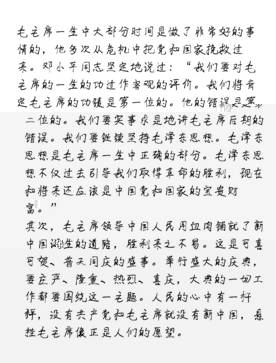 毛主席一生中大部分时间是做了非常好的事
情的，他多次从危机中把党和国家挽救过
来。邓小平同志坚定地说过：“我们要对毛
主席的一生的功过作客观的评价。我们将肯
定毛主席的功绩是第一位的。他的错误是第
二位的。我们要实事求是地讲毛主席后期的
错误。我们要继续坚持毛泽东思想。毛泽东
思想是毛主席一生中正确的部分。毛泽东思
想不仅过去引导我们取得革命的胜利，现在
和将来还应该是中国党和国家的宝贵财
富。”
其次，毛主席领导中国人民用血肉铺就了新
中国诞生的道路，胜利来之不易。这是可喜
可贺、普天同庆的盛事。举行盛大的庆典，
要庄严、隆重、热烈、喜庆，大典的一切工
作都要围绕这一主题。人民的心中有一杆
秤，没有共产党和毛主席就没有新中国，悬
挂毛主席像正是人们的愿望。